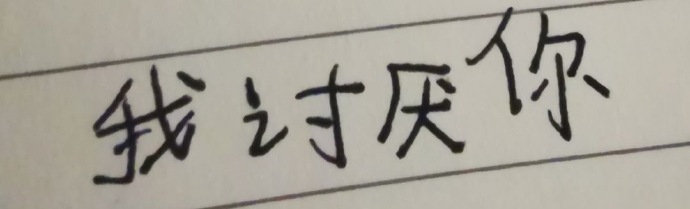 我讨厌你